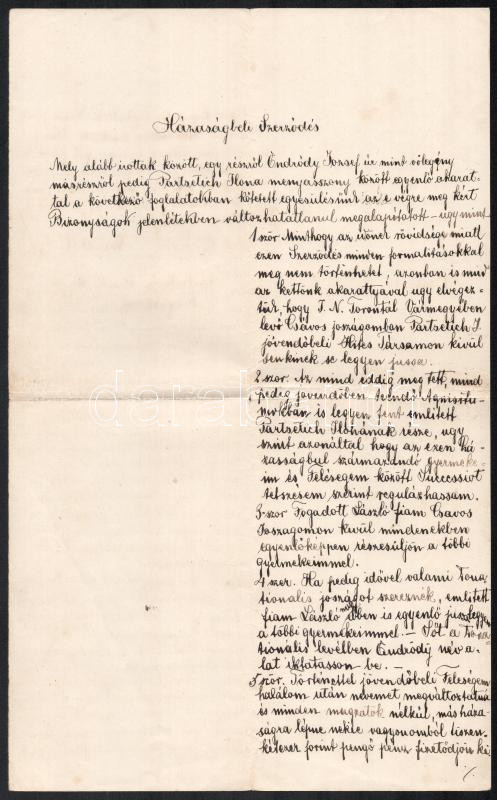 Házaságbeli Szerződés
Mely alább irottak között, egy részről Endrődy József úr mint vőlegény
másrészről pedig Partsetich Ilona menyasszony között egyenlő akarat-
tal a következő foglalatokban köttetett egyesülésünk az e végre meg kért
Bizonyságok jelenlétekben változhatatlanul megalapitatott úgymint
1ször Minthogy az időnek rövidsége miatt
ezen Szerződés minden formalitásokkal
meg nem történhetett, azonban is mind
az kettőnk akarattyával ugy elvégez-
tük, hogy T. N. Torontál Vármegyében
levő Csávos joszágomban Partsetich I.
jövendőbeli Hites Társamon kivül
senkinek se legyen jussa.
2szor. Az mind eddig meg tett, mind
pedig jövendőben teendő Aquisitu-
mokban is legyen fent emlitett
Partsetich Ilonának része, ugy
szint azonáltal hogy az ezen há-
zasságbul származandó gyermeke-
im és Feleségem között Successiot
tetszésem szerint regulázhassam.
3szor Fogadott László fiam Csavos
Joszagomon kivül mindenekben
egyenlőképpen részesüljön a többi
gyermekeimmel.
4szer. Ha pedig idővel valami Dona-
tionalis joszágot szereznék, emlitett
fiam László ében is egyenlő juss legyen
a többi gyermekeimmel. — Sőt a Dona-
tionális levélben Endrődy név a-
lat iktatasson be. —
5ször. Történettel jövendőbeli Feleségem
halálom után nevemet megváltoztatná
és minden magzatok nélkül, más háza-
ságra lépne nekie vagyonomból tiszen-
kétezer forint pengő pénz fizetődjön ki
·/.
darabanth